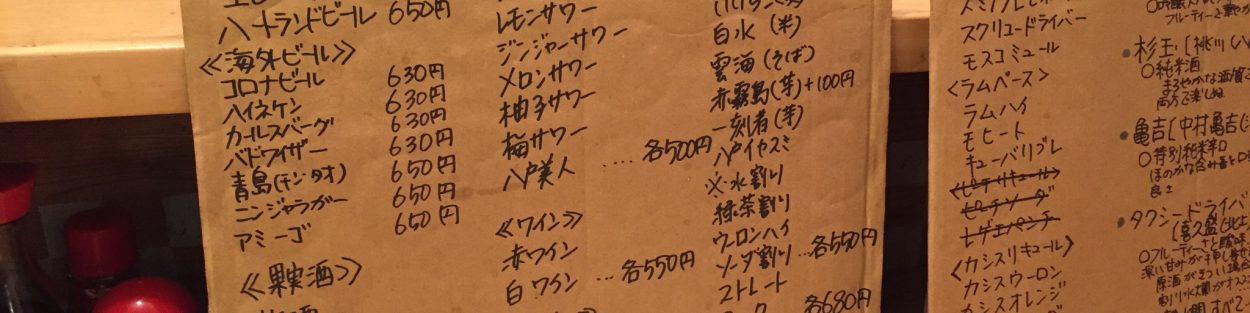 ハートランドビール 650円
≪海外ビール≫
コロナビール 630円
ハイネケン 630円
カールスバーグ 630円
バドワイザー 630円
青島(チンタオ) 650円
ニンジャラガー 650円
アミーゴ 650円
≪果実酒≫
レモンサワー
ジンジャーサワー
メロンサワー
柚子サワー
梅サワー
八戸美人 ....各500円
≪ワイン≫
赤ワイン
白ワイン ...各550円
白水(米)
雲海(そば)
赤霧島(芋)+100円
一刻者(芋)
八戸イヤスミ
※水割り
緑茶割り
ウーロンハイ
ソーダ割り ...各550円
ストレート
各680円
スクリュードライバー
モスコミュール
<ラムベース>
ラムハイ
モヒート
キューバリブレ
<ピーチリキュール>
ピーチソーダ
レゲエパンチ
<カシスリキュール>
カシスウーロン
カシスオレンジ
フルーティーで華やか
●杉玉[桃川(八
○純米酒
まろやかな酒質
両方で楽しめ
●亀吉[中村亀吉(
○特別純米辛口
ほのかな含み香と
良さ
●タクシードライバ
[喜久盛(北上
○フルーティーさと酸味
深い甘みが押し寄せ